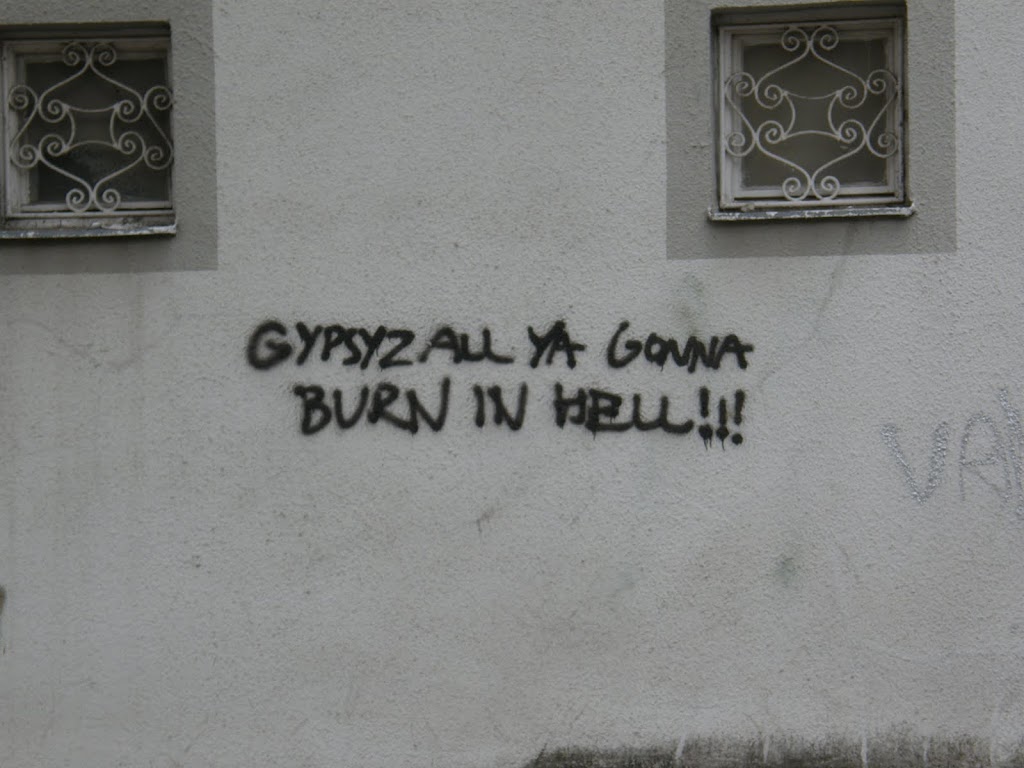 GYPSYZ ALL YA GONNA
BURN IN HELL!!!
VA